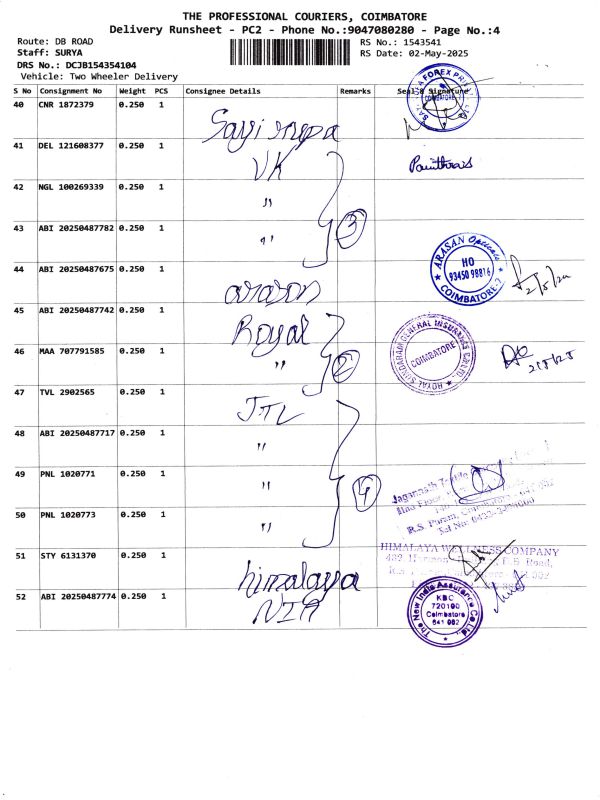 THE PROFESSIONAL COURIERS, COIMBATORE
Delivery Runsheet - PC2 - Phone No.:9047080280 - Page No.:4
Route: DB ROAD
RS No.: 1543541
Staff: SURYA
RS Date: 02-May-2025
DRS No.: DCJB154354104
Vehicle: Two Wheeler Delivery
S No Consignment No Weight PCS Consignee Details Remarks Seal & Signature
40 CNR 1872379 0.250 1
41 DEL 121608377 0.250 1 VK
42 NGL 100269339 0.250 1 "
43 ABI 20250487782 0.250 1 " 3
44 ABI 20250487675 0.250 1 arason
ARASAN Opticals
HO
93450 98816
COIMBATORE-2
45 ABI 20250487742 0.250 1 Royal
ROYAL SUNDARAM GENERAL INSURANCE
COIMBATORE
46 MAA 707791585 0.250 1 " 2
47 TVL 2902565 0.250 1 JTL
48 ABI 20250487717 0.250 1 "
49 PNL 1020771 0.250 1 " 4
50 PNL 1020773 0.250 1 "
R.S. Puram, Coimbatore
51 STY 6131370 0.250 1 himalaya
HIMALAYA WELLNESS COMPANY
52 ABI 20250487774 0.250 1 NIA
The New India Assurance Co. Ltd.
KBC
720100
Coimbatore
641 002